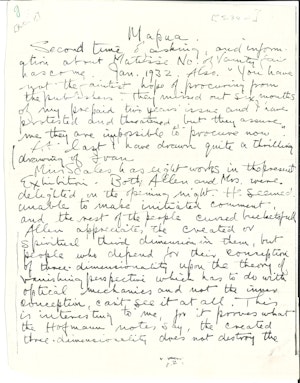 Mapua.
Second time of asking, and inform-
ation about Matisse No. of Vanity Fair
has come. Jan. 1932. Also, "You have
not the faintest hope of procuring from
the publishers - they missed out six months
of my prepaid this years issue and I have
protested and threatened but they assure
me they are impossible to procure now."
At last I have drawn quite a thrilling
drawing of Ivan.
Mrs Scales has eight works in the present
Exhibition. Both Allen and Mrs. were
delighted on the opening night. He seemed
unable to make initiated comment,
and the rest of the people cursed bucketsful
Allen appreciates the created or
spiritual third dimension in them, but
people who depend for their conception
of three-dimensionality upon the theory of
vanishing perspective which has to do with
optical mechanics and not the inner
conception, can't see it at all. This
is interesting to me, for it proves what
the Hofmann notes say, the created
three-dimensionality does not destroy the